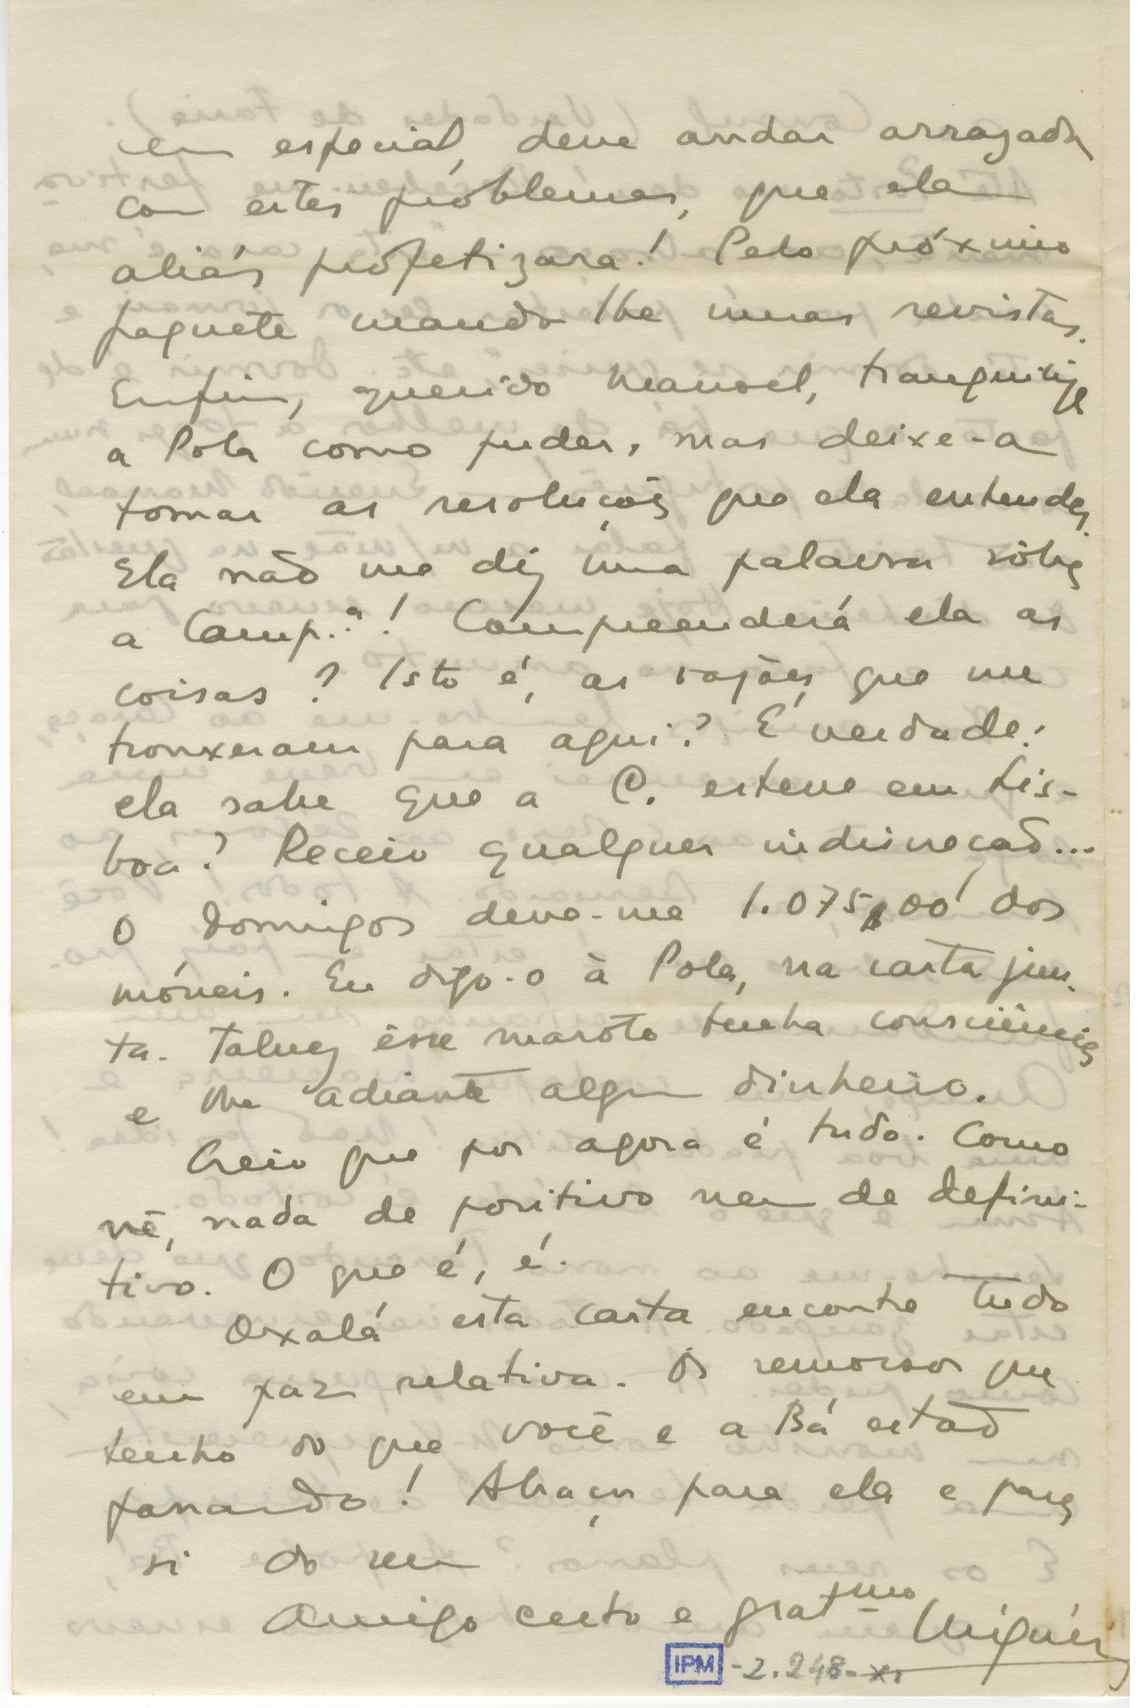 em especial, deve andar arrazada
com estes problemas, que ela
aliás profetizara! Pelo próximo
paquete mando-lhe umas revistas.
Enfim, querido Manoel, tranquilize
a Pola como puder, mas deixe-a
tomar as resoluções que ela entender.
Ela não me diz uma palavra sôbre
a Camp.ª! Compreenderá ela as
coisas? Isto é, as razões que me
trouxeram para aqui? É verdade:
ela sabe que a C. esteve em Lis-
boa? Receio qualquer indiscreção...
O Domingos deve-me 1.075$00 dos
móveis. Eu digo-o à Pola, na carta jun-
ta. Talvez êsse maroto tenha consciência
e lhe adiante algum dinheiro.
Creio que por agora é tudo. Como
vê, nada de positivo nem de defini-
tivo. O que é, é.
Oxalá esta carta encontre tudo
em paz relativa. Os remorsos que
tenho do que você e a Bá estão
passando! Abraços para ela e para
si do seu
Amigo certo e gratmo Miguéis
IPM -2.248-XI